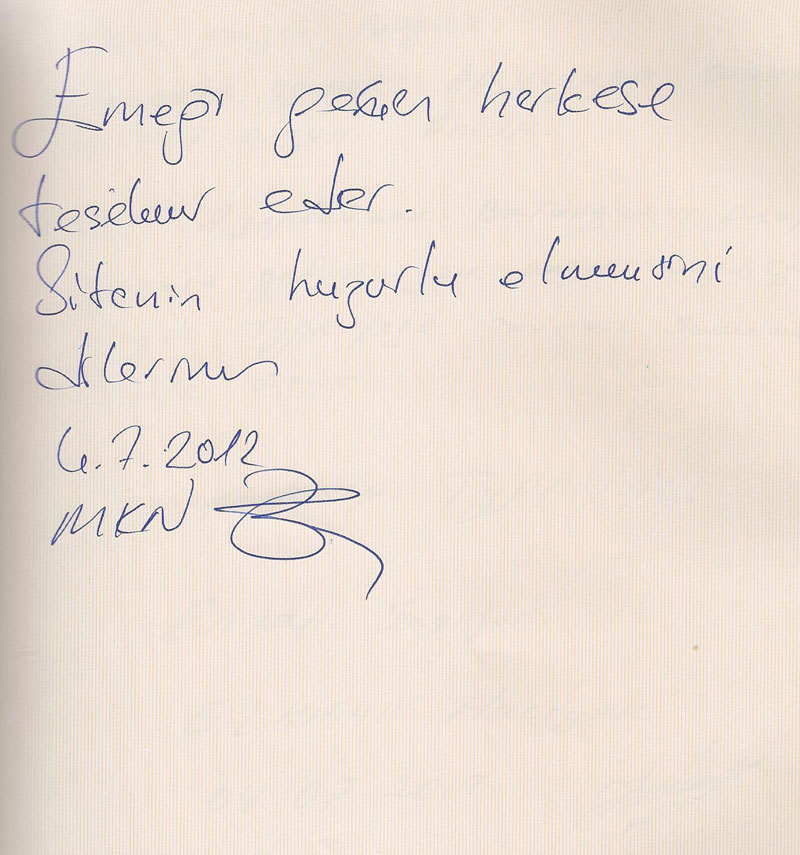 Emeği geçen herkese
teşekkür eder.
Sitenin huzurlu olmasını
dilerim
6.7.2012
MKN